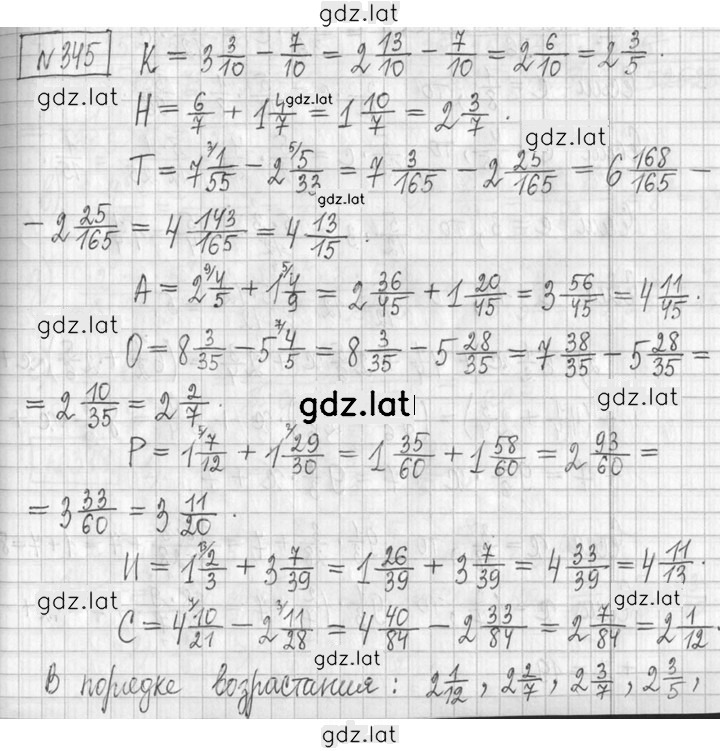 gdz.lat
N 345 K = 3 3/10 − 7/10 = 2 13/10 − 7/10 = 2 6/10 = 2 3/5.
gdz.lat
H = 6/7 + 1 4/7 = 1 10/7 = 2 3/7.
gdz.lat
gdz.lat
T = 7 3/1/55 − 2 5/5/33 = 7 3/165 − 2 25/165 = 6 168/165 −
gdz.lat
− 2 25/165 = 4 143/165 = 4 13/15.
A = 2 9/4/5 + 1 5/4/9 = 2 36/45 + 1 20/45 = 3 56/45 = 4 11/45.
gdz.lat
gdz.lat
O = 8 3/35 − 5 7/4/5 = 8 3/35 − 5 28/35 = 7 38/35 − 5 28/35 =
= 2 10/35 = 2 2/7.
gdz.lat
gdz.lat
P = 1 5/7/12 + 1 2/29/30 = 1 35/60 + 1 58/60 = 2 93/60 =
= 3 33/60 = 3 11/20.
И = 1 13/2/3 + 3 7/39 = 1 26/39 + 3 7/39 = 4 33/39 = 4 11/13.
gdz.lat
gdz.lat
C = 4 4/10/21 − 2 3/11/28 = 4 40/84 − 2 33/84 = 2 7/84 = 2 1/12.
gdz.lat
В порядке возрастания: 2 1/12, 2 2/7, 2 3/7, 2 3/5,
gdz.lat